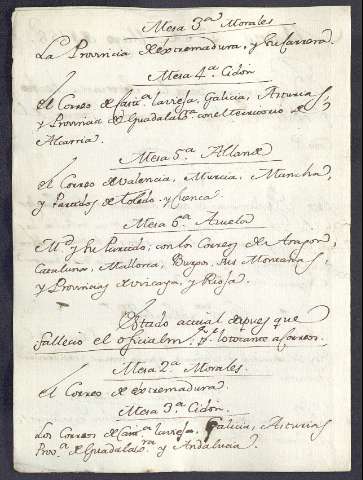 Mesa 3.ª Morales
La Provincia de extremadura, y su carrera.
Mesa 4.ª Cidon
el Correo de Cast.ª la vieja, Galicia, Asturias,
y Provincia de Guadalax.ra con el territorio de
Alcarria.
Mesa 5.ª Allande
el Correo de Valencia, Murcia, Mancha,
y Partidos de Toledo y Cuenca.
Mesa 6.ª Azuela
M.d y su Partido, con los Correos de Aragon,
Cataluña, Mallorca, Burgos, sus Montañas,
y Provincias de vizcaya, y Rioja.
Estado actual despues que
fallecio el oficial m.r p.r lo tocante a Correos.
Mesa 2.ª Morales.
el Correo de extremadura.
Mesa 3.ª Cidon.
Los Correos de Cas.ª la vieja, Galicia, Asturias
Prov.ª de Guadalax.ra y Andalucia.